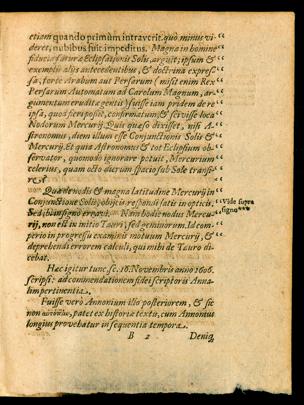 etiam quando primum intraverit. quo minus vi-
deret, nubibus fuit impeditus. Magna in homine
fiducia futuræ Eclipsationis Solis, arguit; ipsum &
exemplis aliis antecedentibus, & doctrina expres-
sa, forte Arabum aut Persarum (misit enim Rex
Persarum Automatum ad Carolum Magnum, ar-
gumentum eruditæ gentis) fuisse jam pridem de re
ipsa, quod scripsit, confirmatum, & scivisse loca
Nodorum Mercurij. Quis quæso dixisset, nisi A-
stronomus, diem illum esse Conjunctionis Solis &
Mercurij. Et quia Astronomus & tot Eclipsium ob-
servator, quomodo ignorare potuit, Mercurium
celerius, quam octo dierum spacio sub Sole transi-
re?
Quæ de nodis & magna latitudine Mercurij in
Conjunctione Solis, objicis respondi satis in opticis.
Sed ibi in signo erravi. Nam hodie nodus Mercu-
rij, non est in initio Tauri, sed geminorum. Id com-
perio in progressu examinis motuum Mercurij, &
deprehendi errorem calculi, qui mihi de Tauro di-
cebat.
Vide supra
signa
Hæc igitur tunc. sc. 10. Novembris anno 1606.
scripsi: ad commendationem fidei scriptoris Anna-
lium pertinentia.
Fuisse vero Annonium illis posteriorem, & sic
non patet ex historiæ textu, cum Annonius
longius provehatur in sequentia tempora.
B 2 Deniq